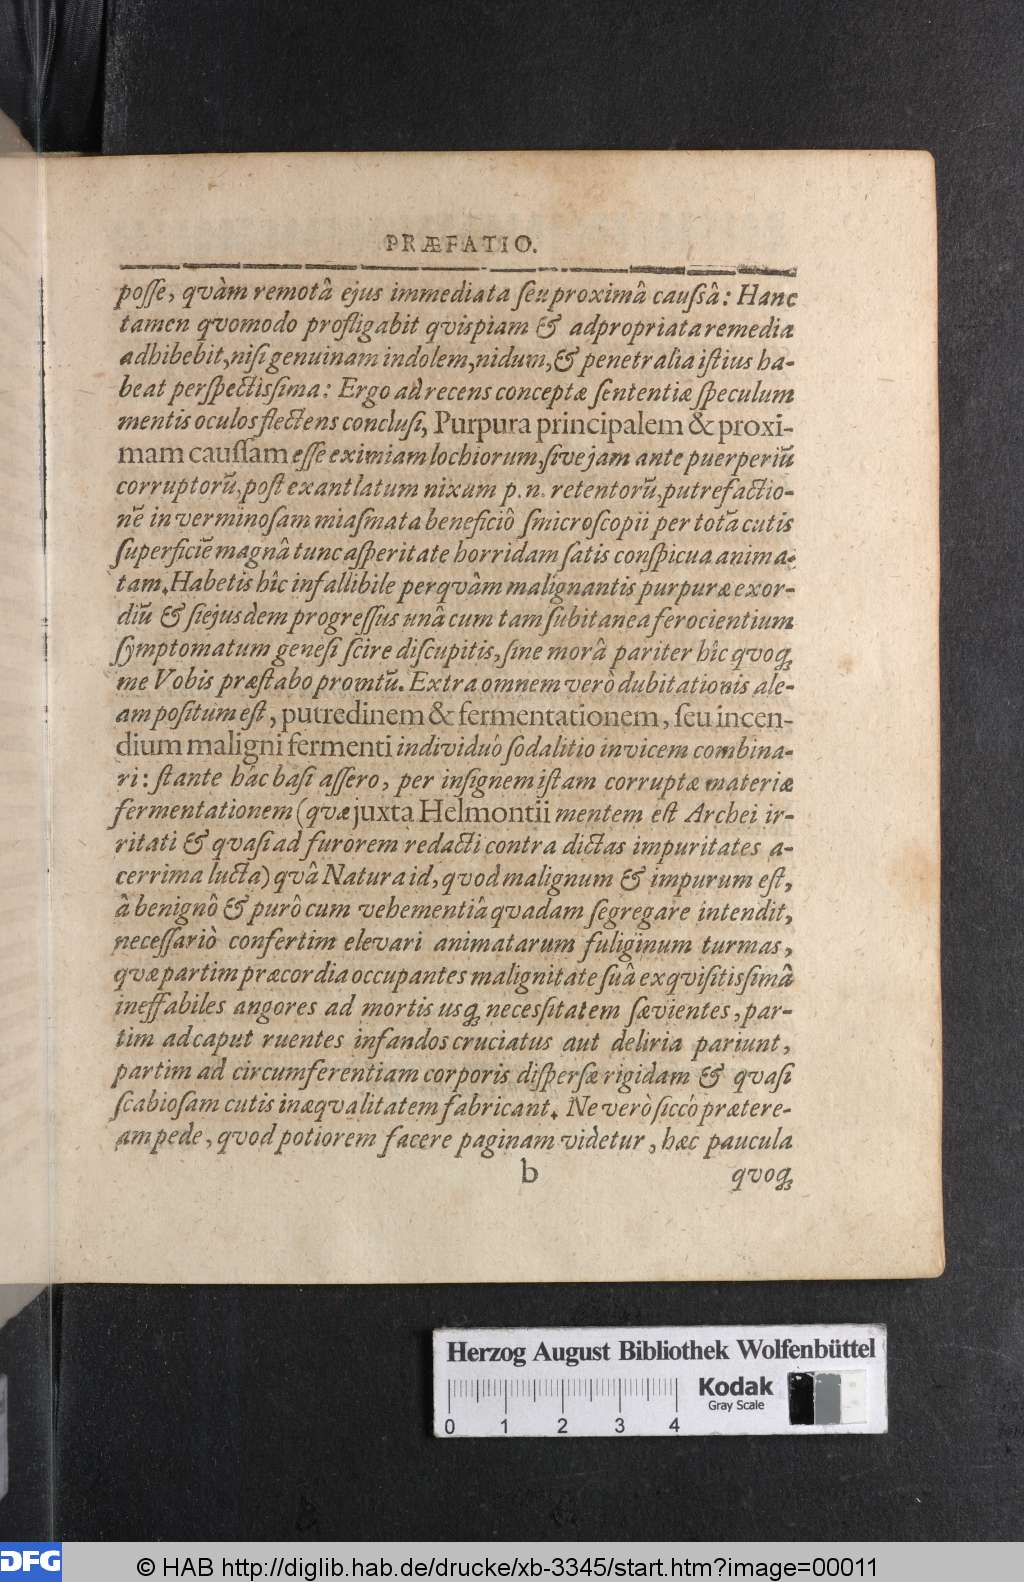 PRÆFATIO.
posse, qvàm remotâ ejus immediata seu proximâ caussâ: Hanc
tamen qvomodo profligabit qvispiam & adpropriata remedia
adhibebit, nisi genuinam indolem, nidum, & penetralia istius ha-
beat perspectissima: Ergo ad recens conceptæ sententiæ speculum
mentis oculos flectens conclusi, Purpura principalem & proxi-
mam caussam esse eximiam lochiorum, sive jam ante puerperiū
corruptorū, post exantlatum nixum p. n. retentorū, putrefactio-
nē in verminosam miasmata beneficiô smicroscopii per totā cutis
superficiē magnâ tunc asperitate horridam satis conspicua anima-
tam. Habetis hîc infallibile perqvàm malignantis purpuræ exor-
diū & si ejusdem progressus unâ cum tam subitanea ferocientium
symptomatum genesi scire discupitis, sine morâ pariter hîc qvoqꝫ
me Vobis præstabo promtū. Extra omnem verò dubitationis ale-
am positum est, putredinem & fermentationem, seu incen-
dium maligni fermenti individuô sodalitio invicem combina-
ri: stante hâc basi assero, per insignem istam corruptæ materiæ
fermentationem (qvæ juxta Helmontii mentem est Archei ir-
ritati & qvasi ad furorem redacti contra dictas impuritates a-
cerrima lucta) qvâ Natura id, qvod malignum & impurum est,
â benignô & purô cum vehementiâ qvadam segregare intendit,
necessariò confertim elevari animatarum fuliginum turmas,
qvæ partim præcordia occupantes malignitate suâ exqvisitissimâ
ineffabiles angores ad mortis usqꝫ necessitatem sævientes, par-
tim ad caput ruentes infandos cruciatus aut deliria pariunt,
partim ad circumferentiam corporis dispersæ rigidam & qvasi
scabiosam cutis inæqvalitatem fabricant. Ne verò siccó prætere-
am pede, qvod potiorem facere paginam videtur, hæc paucula
b qvoqꝫ
Herzog August Bibliothek Wolfenbüttel
Kodak
Gray Scale
0 1 2 3 4
DFG
© HAB http://diglib.hab.de/drucke/xb-3345/start.htm?image=00011